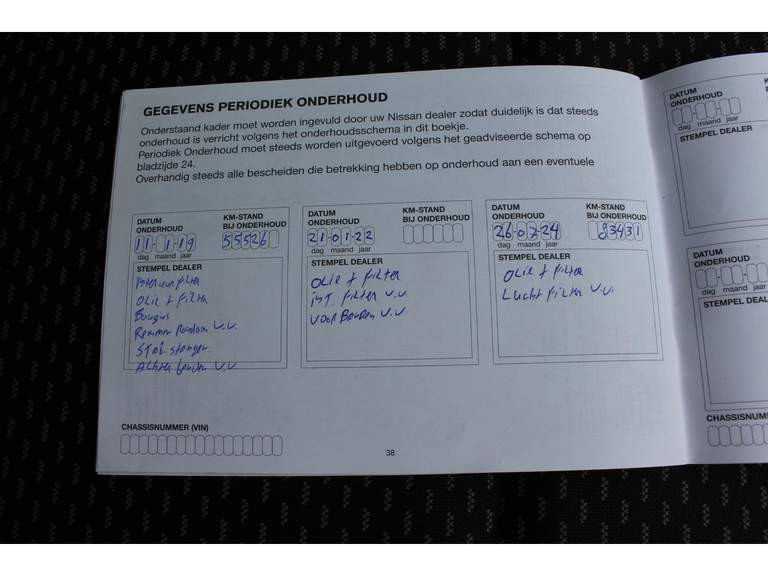 GEGEVENS PERIODIEK ONDERHOUD
Onderstaand kader moet worden ingevuld door uw Nissan dealer zodat duidelijk is dat steeds
onderhoud is verricht volgens het onderhoudsschema in dit boekje.
Periodiek Onderhoud moet steeds worden uitgevoerd volgens het geadviseerde schema op
bladzijde 24.
Overhandig steeds alle bescheiden die betrekking hebben op onderhoud aan een eventuele
DATUM
ONDERHOUD
KM-STAND
BIJ ONDERHOUD
11-1-19
55526
dag maand jaar
STEMPEL DEALER
Interieurfilter
olie + filter
Bougies
Remmen Rondom v.v.
Stab stangen
Achter banden v.v.
DATUM
ONDERHOUD
KM-STAND
BIJ ONDERHOUD
21-01-22
dag maand jaar
STEMPEL DEALER
olie + filter
int. filter v.v.
voorbanden v.v.
DATUM
ONDERHOUD
KM-STAND
BIJ ONDERHOUD
26-07-24
83431
dag maand jaar
STEMPEL DEALER
olie + filter
Lucht filter v.v.
CHASSISNUMMER (VIN)
38
DATUM
ONDERHOUD
dag maand jaar
STEMPEL DEALER
DATUM
ONDERHOUD
dag maand jaar
STEMPEL DEAL
CHASSISNUMM